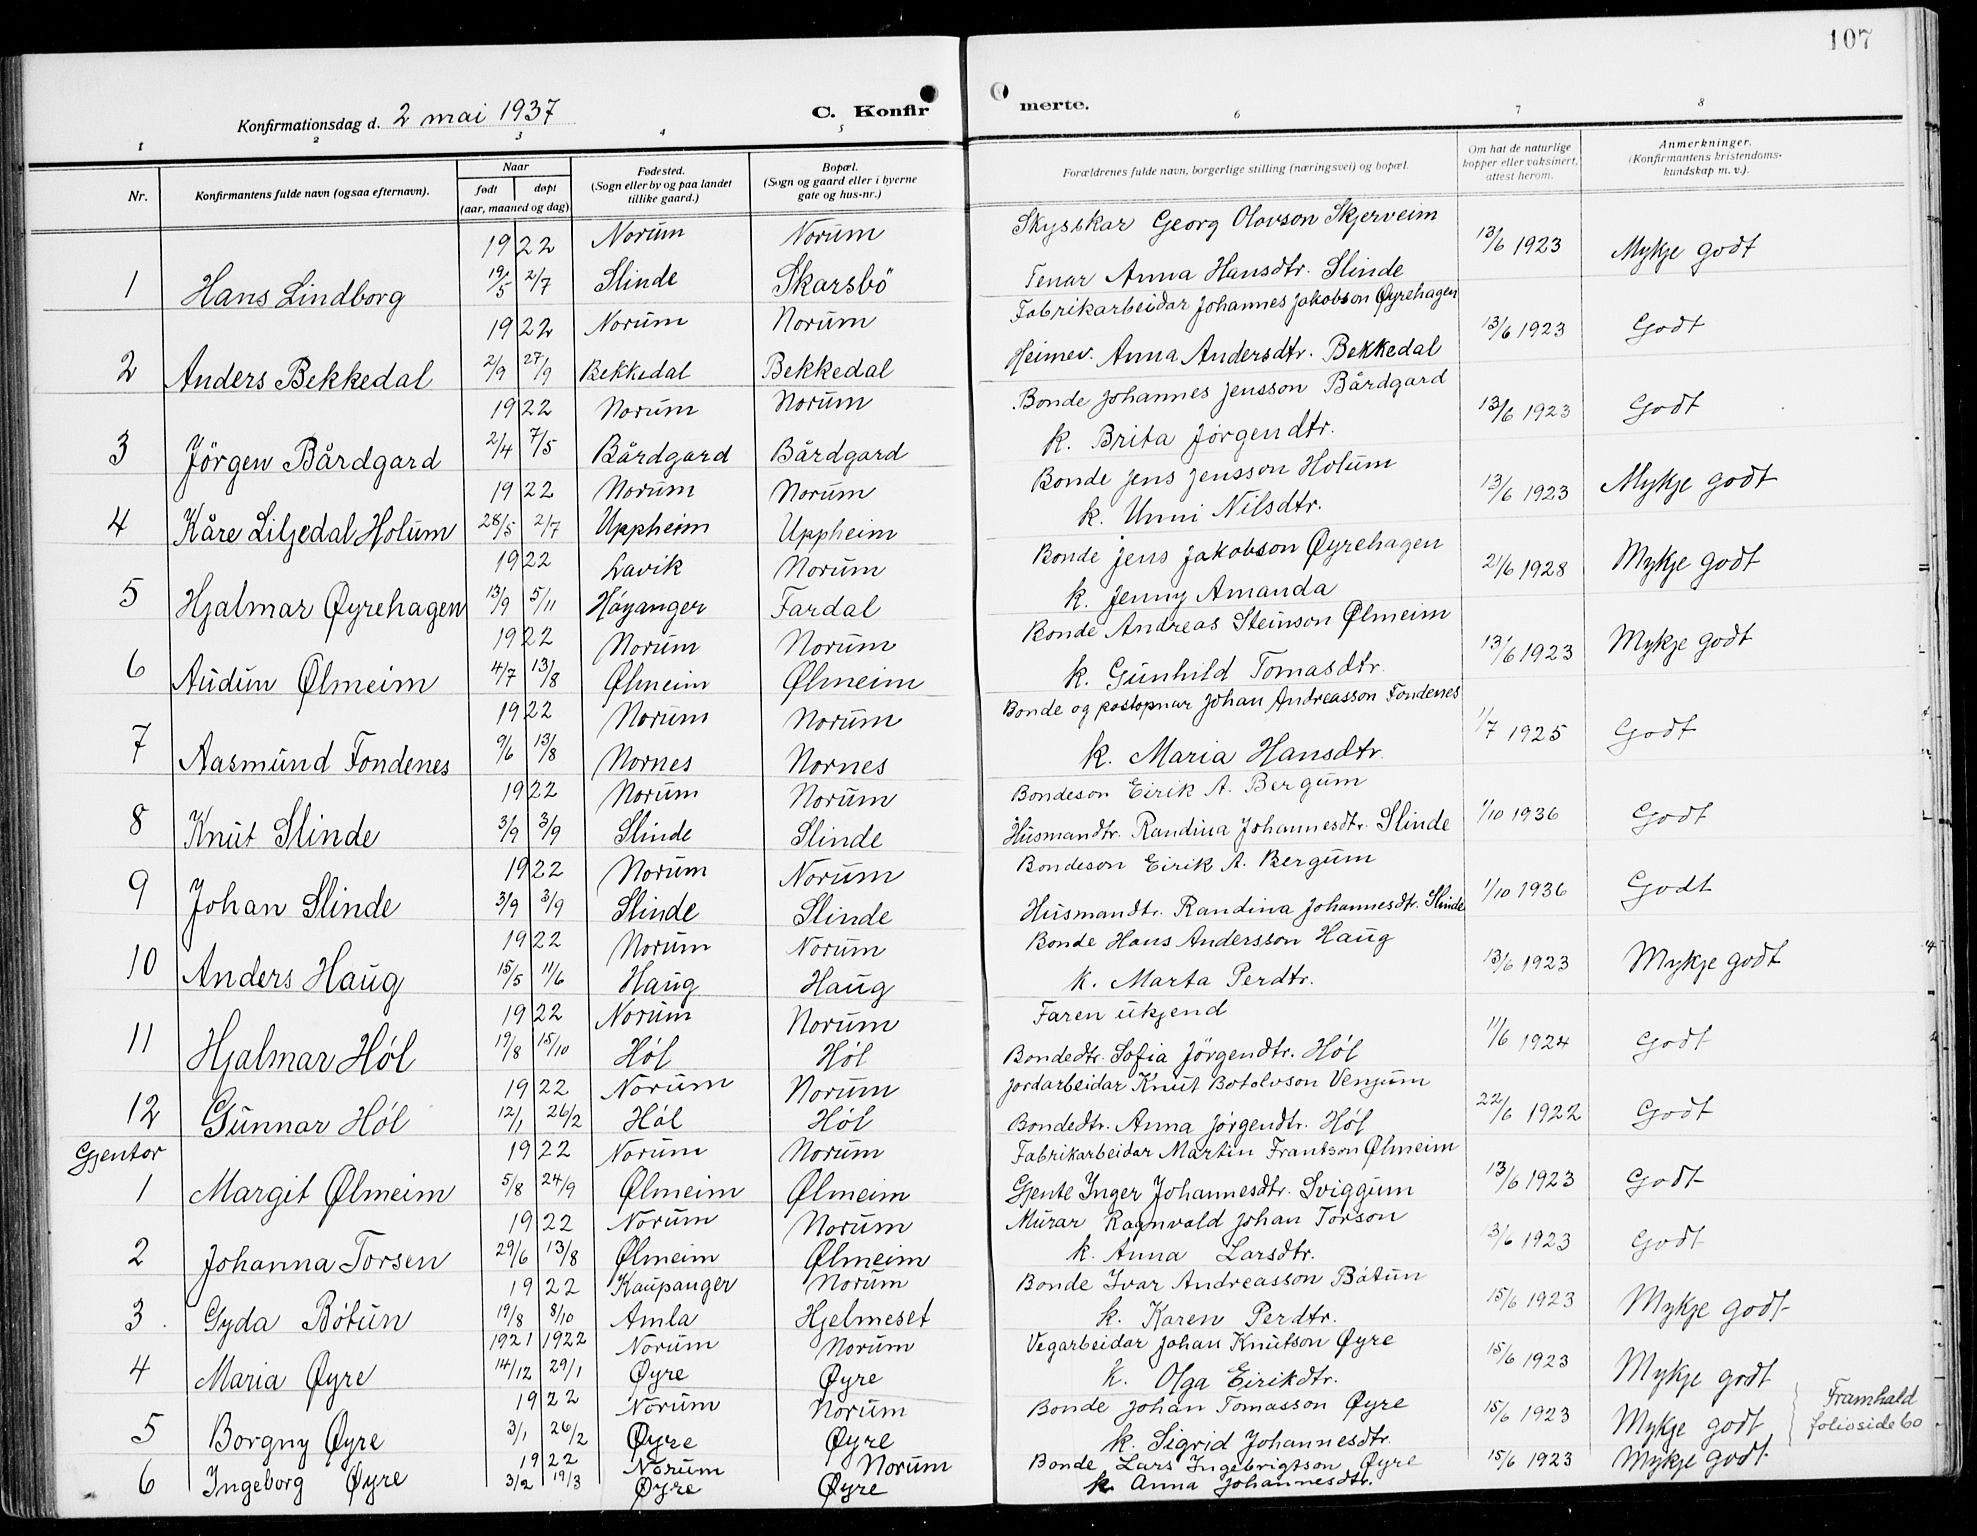 107
Konfirmationsdag d. 2 mai 1937 C. Konfir merte.
1 2 3 4 5 6 7 8
Nr. Konfirmantens fulde navn (ogsaa efternavn). Naar født døpt (aar, maaned og dag) Fødested. (Sogn eller by og paa landet tillike gaard.) Bopæl. (Sogn og gaard eller i byerne gate og hus-nr.) Forældrenes fulde navn, borgerlige stilling (næringsvei) og bopæl. Om hat de naturlige kopper eller vaksinert, attest herom. Anmerkninger. (Konfirmantens kristendoms-kundskap m. v.).
1922 Norum Norum Skysskar Georg Olavson Skjerveim 13/6 1923 Mykje godt
1 Hans Lindborg 19/5 2/7 Slinde Skarsbö Tenar Anna Hansdtr. Slinde
1922 Norum Norum Fabrikarbeidar Johannes Jakobson Øyrehagen 13/6 1923 Godt
2 Anders Bekkedal 2/9 27/9 Bekkedal Bekkedal Heimev. Anna Andersdtr. Bekkedal
1922 Norum Norum Bonde Johannes Jensson Bårdgard 13/6 1923 Godt
3 Jörgen Bårdgard 2/4 7/5 Bårdgard Bårdgard k. Brita Jørgendtr.
1922 Norum Norum Bonde Jens Jensson Holum 13/6 1923 Mykje godt
4 Kåre Liljedal Holum 28/5 2/7 Uppheim Uppheim k. Unni Nilsdtr.
1922 Lavik Norum Bonde Jens Jakobson Øyrehagen 21/6 1928 Mykje godt
5 Hjalmar Øyrehagen 13/9 5/11 Høyanger Fardal k. Jenny Amanda
1922 Norum Norum Bonde Andreas Steinson Ølmeim 13/6 1923 Mykje godt
6 Audun Ølmeim 4/7 13/8 Ølmeim Ølmeim k. Gunhild Tomasdtr.
1922 Norum Norum Bonde og postopnar Johan Andreasson Fondenes 1/7 1925 Godt
7 Aasmund Fondenes 9/6 13/8 Nornes Nornes k. Maria Hansdtr.
1922 Norum Norum Bondeson Eirik A. Bergum 1/10 1936 Godt
8 Knut Slinde 3/9 3/9 Slinde Slinde Husmandtr. Randina Johannesdtr. Slinde
1922 Norum Norum Bondeson Eirik A. Bergum 1/10 1936 Godt
9 Johan Slinde 3/9 3/9 Slinde Slinde Husmandtr. Randina Johannesdtr. Slinde
1922 Norum Norum Bonde Hans Andersson Haug 13/6 1923 Mykje godt
10 Anders Haug 15/5 11/6 Haug Haug k. Marta Perdtr.
1922 Norum Norum Faren ukjend 11/6 1924 Godt
11 Hjalmar Høl 19/8 15/10 Høl Høl Bondedtr. Sofia Jörgendtr. Høl
1922 Norum Norum Jordarbeidar Knut Botolvson Venjum 22/6 1922 Godt
12 Gunnar Høl 12/1 26/2 Høl Høl Bondedtr. Anna Jørgendtr. Høl
Gjentor 1922 Norum Norum Fabrikarbeidar Martin Frantson Ølmeim 13/6 1923 Godt
1 Margit Ølmeim 5/8 24/9 Ølmeim Ølmeim Gjente Inger Johannesdtr. Sviggum
1922 Norum Norum Murar Ragnvald Johan Torson 13/6 1923 Godt
2 Johanna Torsen 29/6 13/8 Ølmeim Ølmeim k. Anna Larsdtr.
1922 Kaupanger Norum Bonde Ivar Andreasson Bøtun 15/6 1923 Mykje godt
3 Gyda Bøtun 19/8 8/10 Amla Hjelmeset k. Karen Perdtr.
1921 1922 Norum Norum Vegarbeidar Johan Knutson Øyre 15/6 1923 Mykje godt
4 Maria Øyre 14/12 29/1 Øyre Øyre k. Olga Eirikdtr.
1922 Norum Norum Bonde Johan Tomasson Øyre 15/6 1923 Mykje godt Framhald folioside 60
5 Borgny Øyre 3/1 26/2 Øyre Øyre k. Sigrid Johannesdtr.
1922 Norum Norum Bonde Lars Ingebrigtson Øyre 15/6 1923 Mykje godt
6 Ingeborg Øyre 3/2 19/3 Øyre Øyre k. Anna Johannesdtr.